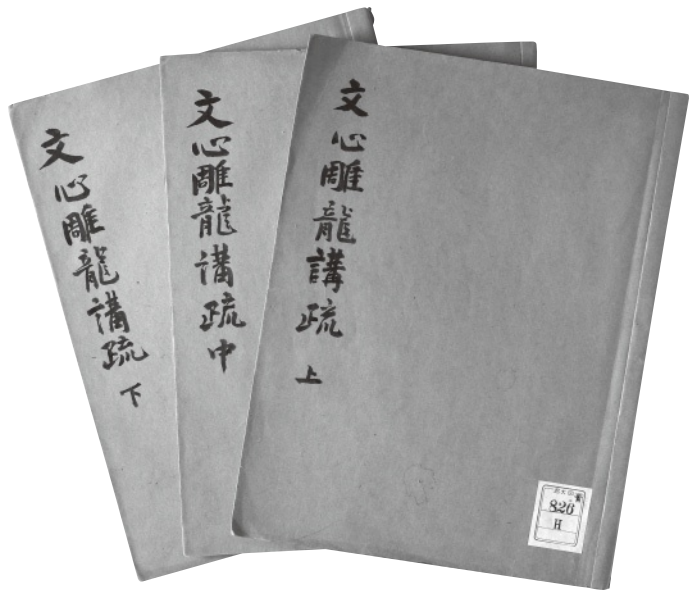 文心雕龍講疏 上
文心雕龍講疏 中
文心雕龍講疏 下
826
H